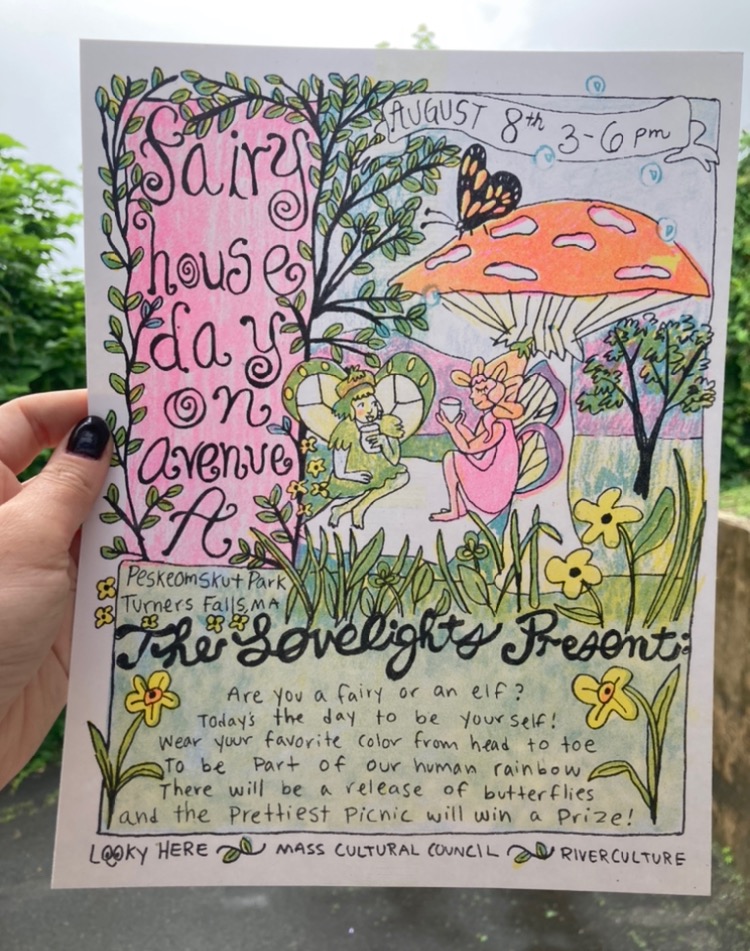 fairy
house
day
on
avenue
A
AUGUST 8th 3-6 pm
Peskeomskut Park
Turners Falls, MA
The Lovelights Present:
Are you a fairy or an elf?
Today's the day to be yourself!
Wear your favorite color from head to toe
To be Part of our human rainbow
There will be a release of butterflies
and the Prettiest Picnic will win a Prize!
LOOKY HERE MASS CULTURAL COUNCIL RIVERCULTURE